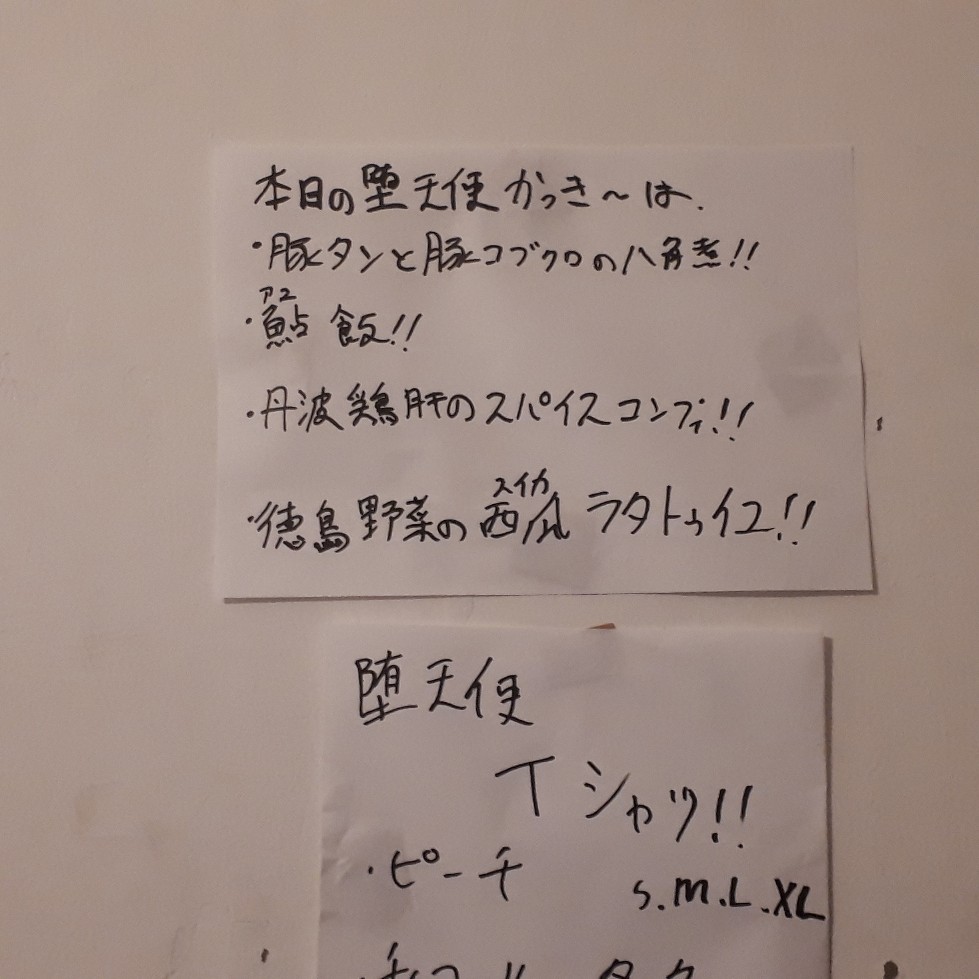 本日の堕天使かっき～は、
・豚タンと豚コブクロの八角煮!!
アユ
・鮎飯!!
・丹波鶏肝のスパイスコンフィ!!
スイカ
・徳島野菜の西瓜ラタトゥイユ!!
堕天使
Tシャツ!!
・ピーチ
S.M.L.XL